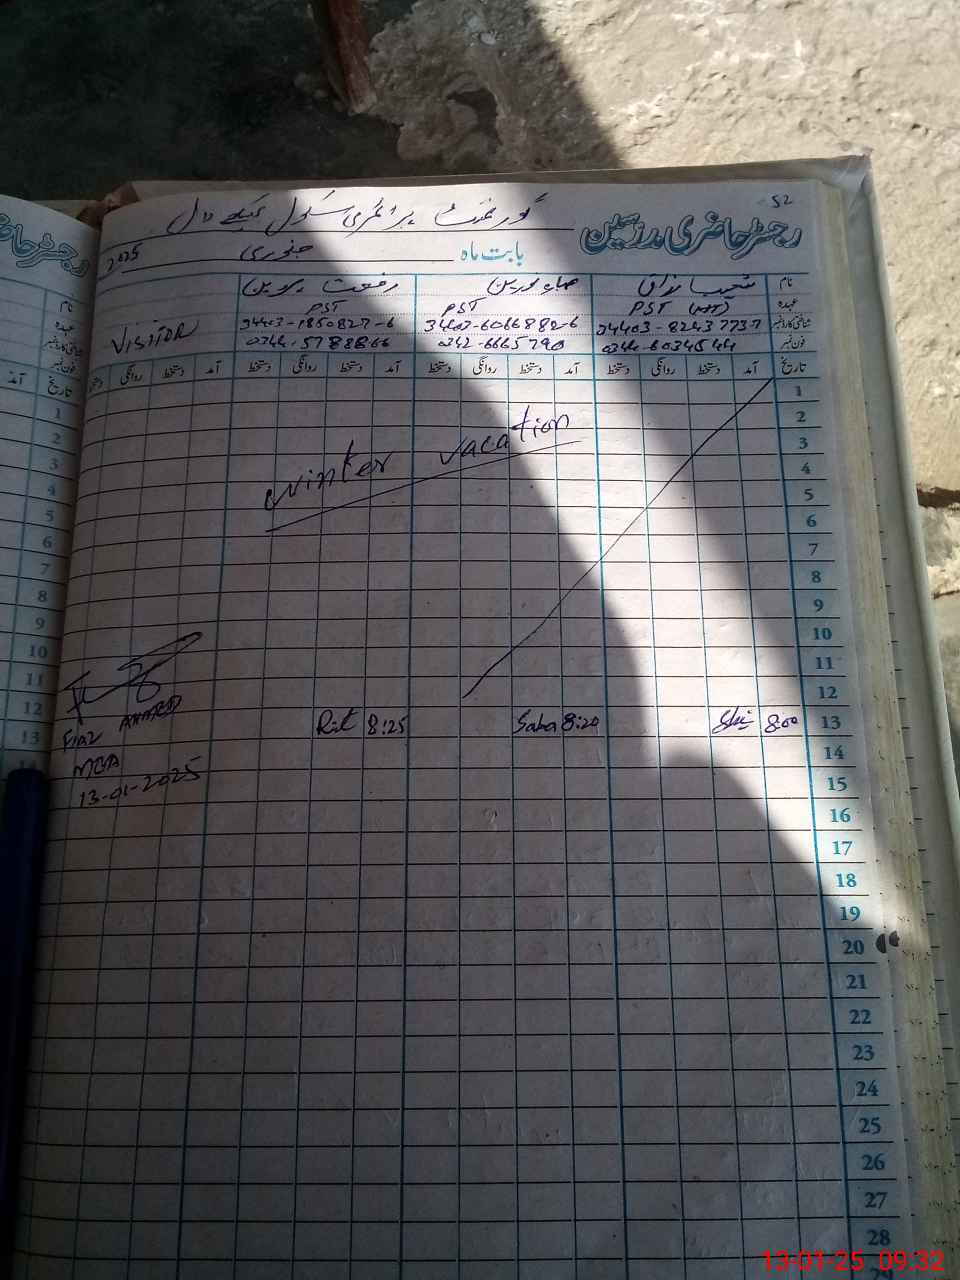 52
رجسٹر حاضری مدرسین
گورنمنٹ پرائمری سکول
بابت ماہ جنوری 2025
نام رفعت پروین
عہدہ PST (HT) PST PST
شناختی کارڈ نمبر 34403-6066882-6 34403-1850827-6 VISITOR
فون نمبر 0344-6034544 0342-6665790 0344-5788866
تاریخ آمد دستخط روانگی دستخط آمد دستخط روانگی دستخط آمد دستخط روانگی دستخط آمد دستخط روانگی دستخط
1
2
winter vacation
3
4
5
6
7
8
9
10
11
12
13 8:00 Saba 8:20 8:25
FIAZ AHMED
MEA
13-01-2025
14
15
16
17
18
19
20
21
22
23
24
25
26
27
28
29
رجسٹر حا
نام
عہدہ
شناختی کارڈ نمبر
فون نمبر
تاریخ آمد
1
2
3
4
5
6
7
8
9
10
11
12
13
14
13-01-25 09:32